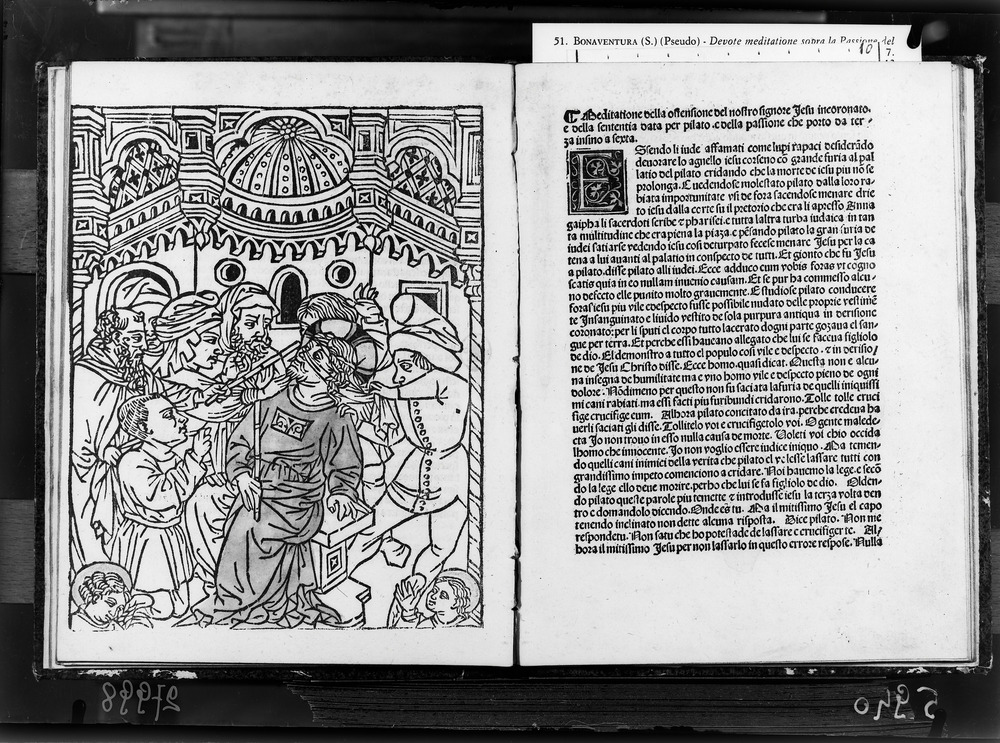 51. BONAVENTURA (S.) (Pseudo) - Devote meditatione sopra la Passione del
10 7.
¶ Meditatione della offensione del nostro signore Jesu incoronato.
e della sententia data per pilato. e della passione che porto da ter/
za insino a sexta.
ESsendo li iudei affamati come lupi rapaci desiderādo
deuorare lo agnello iesu corseno cō grande furia al pal
latio del pilato cridando che la morte de iesu piu nō se
prolonga. E uedendose molestato pilato dalla loro ra-
biata importunitate vsi de fora facendose menare drie
to iesu dalla corte su il pretorio che era li apesso Anna
gaipha li sacerdoti scribe ⁊ pharisei. e tutta laltra turba iudaica in tan
ta multitudine che era piena la piaza. e pēsando pilato la gran furia de
iudei satiarse vedendo iesu cosi deturpato fecese menare Jesu per la ca
tena a lui auanti al palatio in conspecto de tutti. Et gionto che fu Jesu
a pilato. disse pilato alli iudei. Ecce adduco eum vobis foras vt cogno
scatis quia in eo nullam inuenio causam. Et se pur ha commesso alcu-
no defecto elle punito molto grauemente. E studiose pilato conducere
foras iesu piu vile e despecto fusse possibile nudato delle proprie vestimē
te Insanguinato e liuido vestito de sola purpura antiqua in derisione
coronato: per li sputi el corpo tutto lacerato dogni parte gozaua el san-
gue per terra. Et perche essi haueano allegato che lui se faceua figliolo
de dio. El demonstro a tutto el populo cosi vile e despecto. ⁊ in derisio/
ne de Jesu Christo disse. Ecce homo. quasi dicat. Questa non e alcu-
na insegna de humilitate ma e vno homo vile e despecto pieno de ogni
dolore. Nōdimeno per questo non fu saciata la furia de quelli iniquissi
mi cani rabiati. ma essi facti piu furibundi cridarono. Tolle tolle cruci
fige crucifige eum. Alhora pilato concitato da ira. perche credeua ha
uerli saciati gli disse. Tollitelo voi e crucifigetolo voi. O gente malede-
cta Jo non trouo in esso nulla causa de morte. Voleti voi chio occida
lhomo che innocente. Jo non voglio essere iudice iniquo. Ma temen-
do quelli cani inimici della verita che pilato el volesse lassare tutti con
grandissimo impeto comenciono a cridare. Noi hauemo la lege. e secō
do la lege ello deue morire. perho che lui se fa figliolo de dio. Olden-
do pilato queste parole piu temette ⁊ introdusse iesu la terza volta den
tro e domandolo dicendo. Onde es tu. Ma il mitissimo Jesu el capo
tenendo inclinato non dette alcuna risposta. Dice pilato. Non me
respondetu. Non satu che ho potestade de lassare e crucifigerte. Al/
hora il mitissimo Jesu per non lassarlo in questo errore respose. Nulla
27998
5940